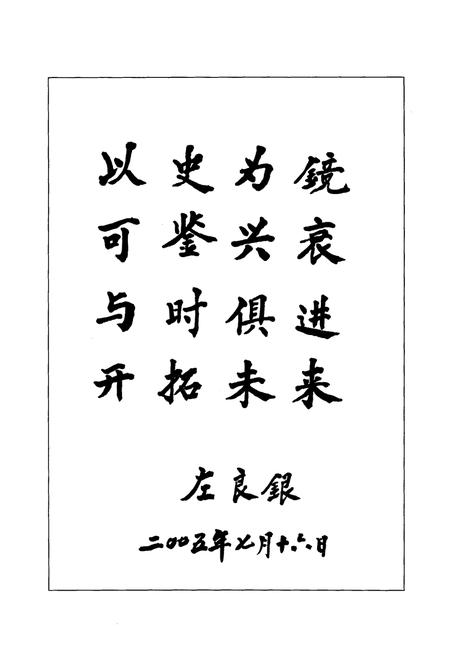 以史为鏡
可鉴兴衰
与时俱进
开拓未来
左良銀
二00五年七月十六日